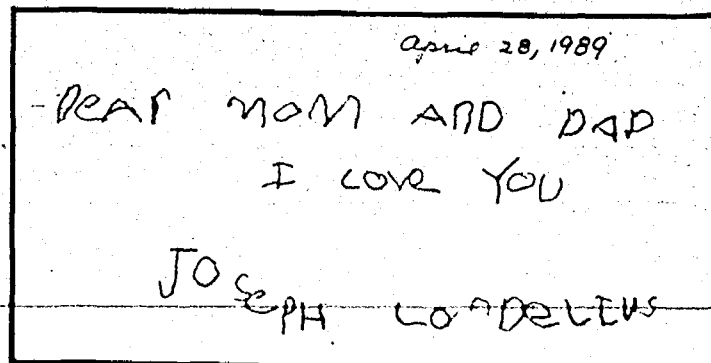 April 28, 1989
DeAr MOM AND DAD
I LOVe YOU
JOSePH LOnDeLIUS